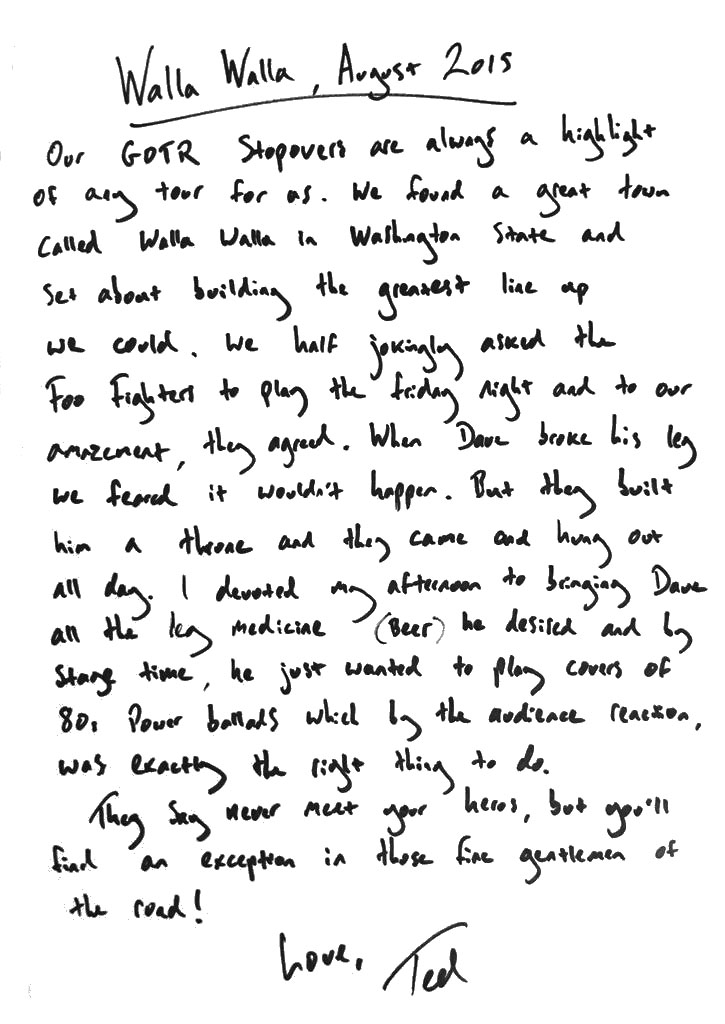 Walla Walla, August 2015
Our GOTR Stopovers are always a highlight
of any tour for us. We found a great town
called Walla Walla in Washington State and
set about building the greatest line up
we could. We half jokingly asked the
Foo Fighters to play the friday night and to our
amazement, they agreed. When Dave broke his leg
we feared it wouldn't happen. But they built
him a throne and they came and hung out
all day. I devoted my afternoon to bringing Dave
all the leg medicine (Beer) he desired and by
stage time, he just wanted to play covers of
80s Power ballads which by the audience reaction,
was exactly the right thing to do.
They say never meet your heros, but you'll
find an exception in those fine gentlemen of
the road!
Love, Ted